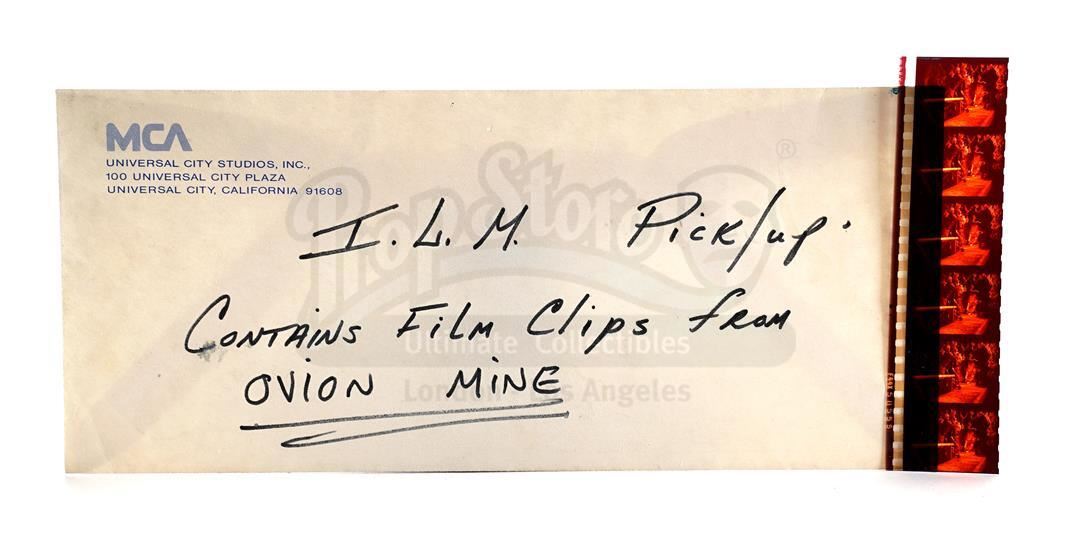 MCA
UNIVERSAL CITY STUDIOS, INC.,
100 UNIVERSAL CITY PLAZA
UNIVERSAL CITY, CALIFORNIA 91608
I.L.M. Pick/up.
CONTAINS Film Clips from
OVION MINE
Prop Store
®
Ultimate Collectibles
London - Los Angeles